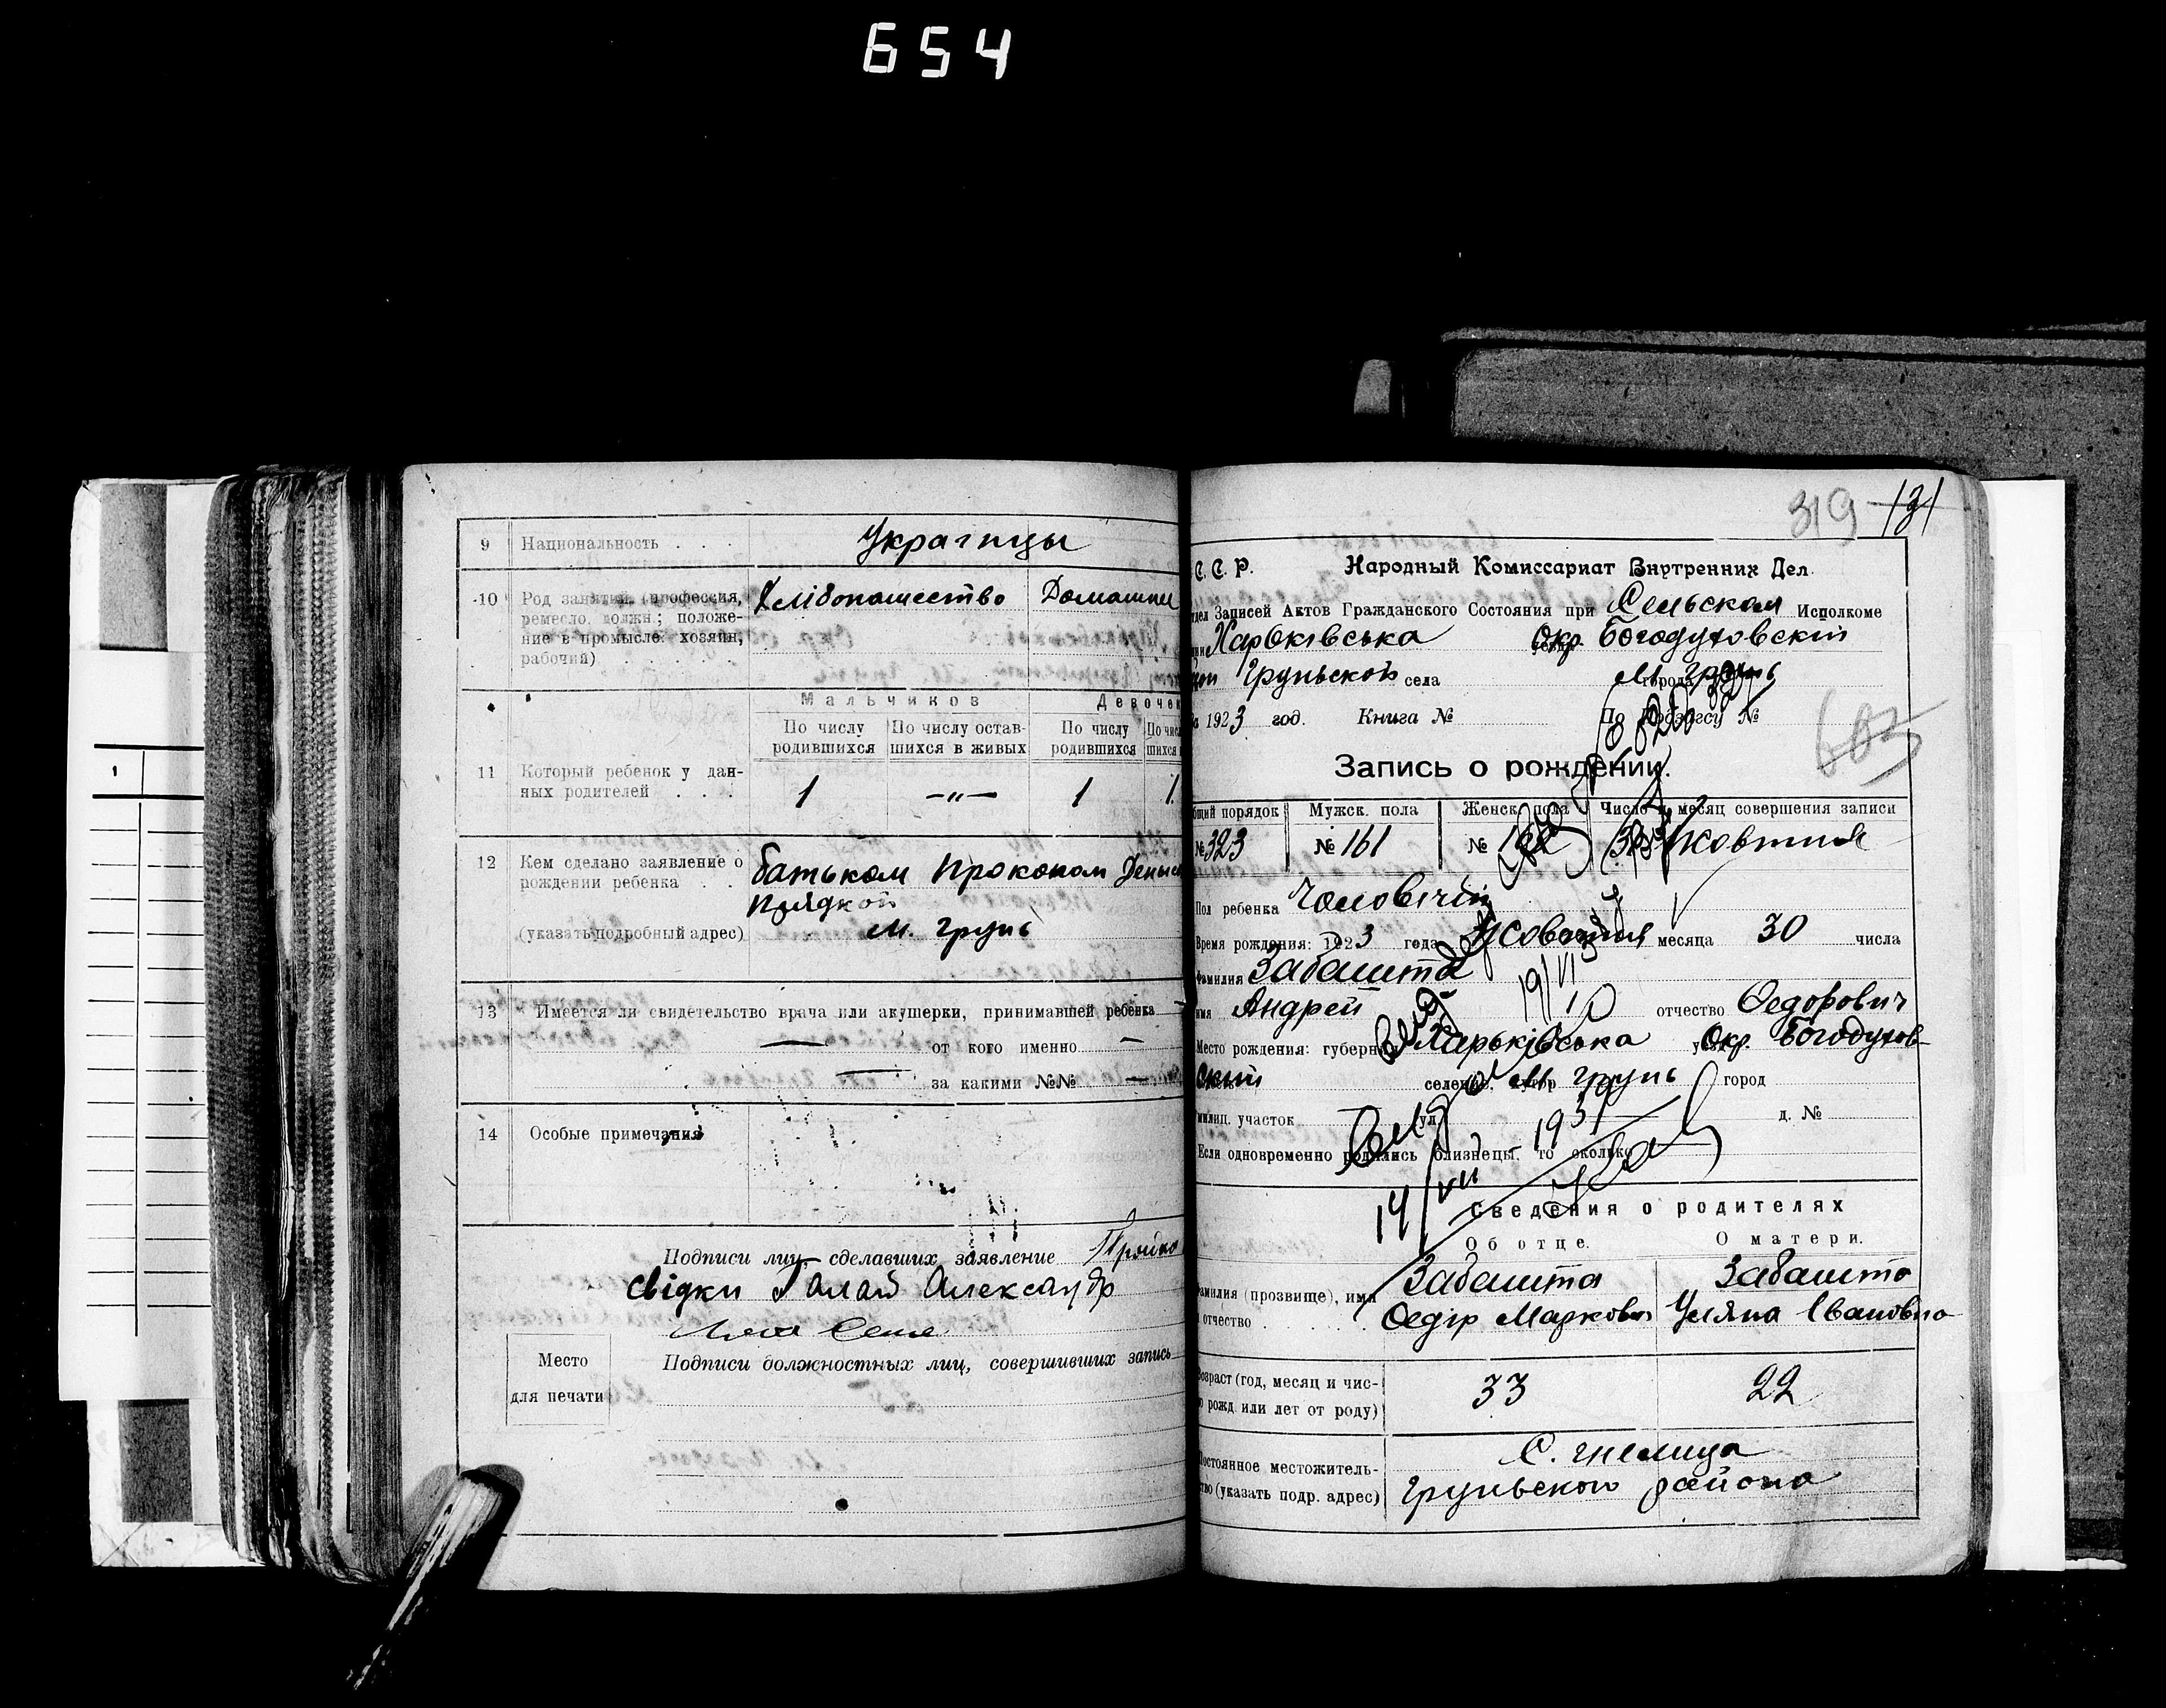 654
9 Национальность . . . Украгнцы
10 Род занятий (профессия, ремесло, должн.; положение в промысле: хозяин, рабочий) . . . Хлібопашество Домашны
Мальчиков Девочек
По числу родившихся По числу оставшихся в живых По числу родившихся По чис
11 Который ребенок у данных родителей . . . 1 —"— 1 1.
12 Кем сделано заявление о рождении ребенка . . батьком Прокопом Денис
Прядкой
(указать подробный адрес) м. Грунь
13 Имеется ли свидетельство врача или акушерки, принимавшей ребенка —
— от кого именно —
— за какими №№ —
14 Особые примечания
Подписи лиц, сделавших заявление
свідки Галай Александр
Подписи должностных лиц, совершивших запись
Место
для печати
319 131
С. С. Р. Народный Комиссариат Внутренних Дел.
дел Записей Актов Гражданского Состояния при Сельском Исполкоме
Харьківська Окр. Богодуховскій
Груньской села м. Грунь города
1923 год. Книга № По Прозгсу №
603
Запись о рождении.
бщий порядок Мужск. пола Женск. пола Число и месяц совершения записи
№ 323 № 161 № 162 30 жовтня
Пол ребенка Чоловічій
Время рождения: 1923 года жовтня месяца 30 числа
Фамилия Забашта
имя Андрей отчество Федорович
19/VI
Место рождения: губерн Харьківська Окр. Богодухов-
ский селение, хутор м Грунь город
милиц. участок — ул. д. №
Если одновременно родились близнецы, то сколько
14/VII 1939
Сведения о родителях
Об отце. О матери.
Фамилия (прозвище), имя Забашта Забашта
отчество . . . . Федір Маркович Уляна Івановна
Возраст (год, месяц и число рожд. или лет от роду) 33 22
Постоянное местожительство (указать подр. адрес) С. Гнелица
Груньского района